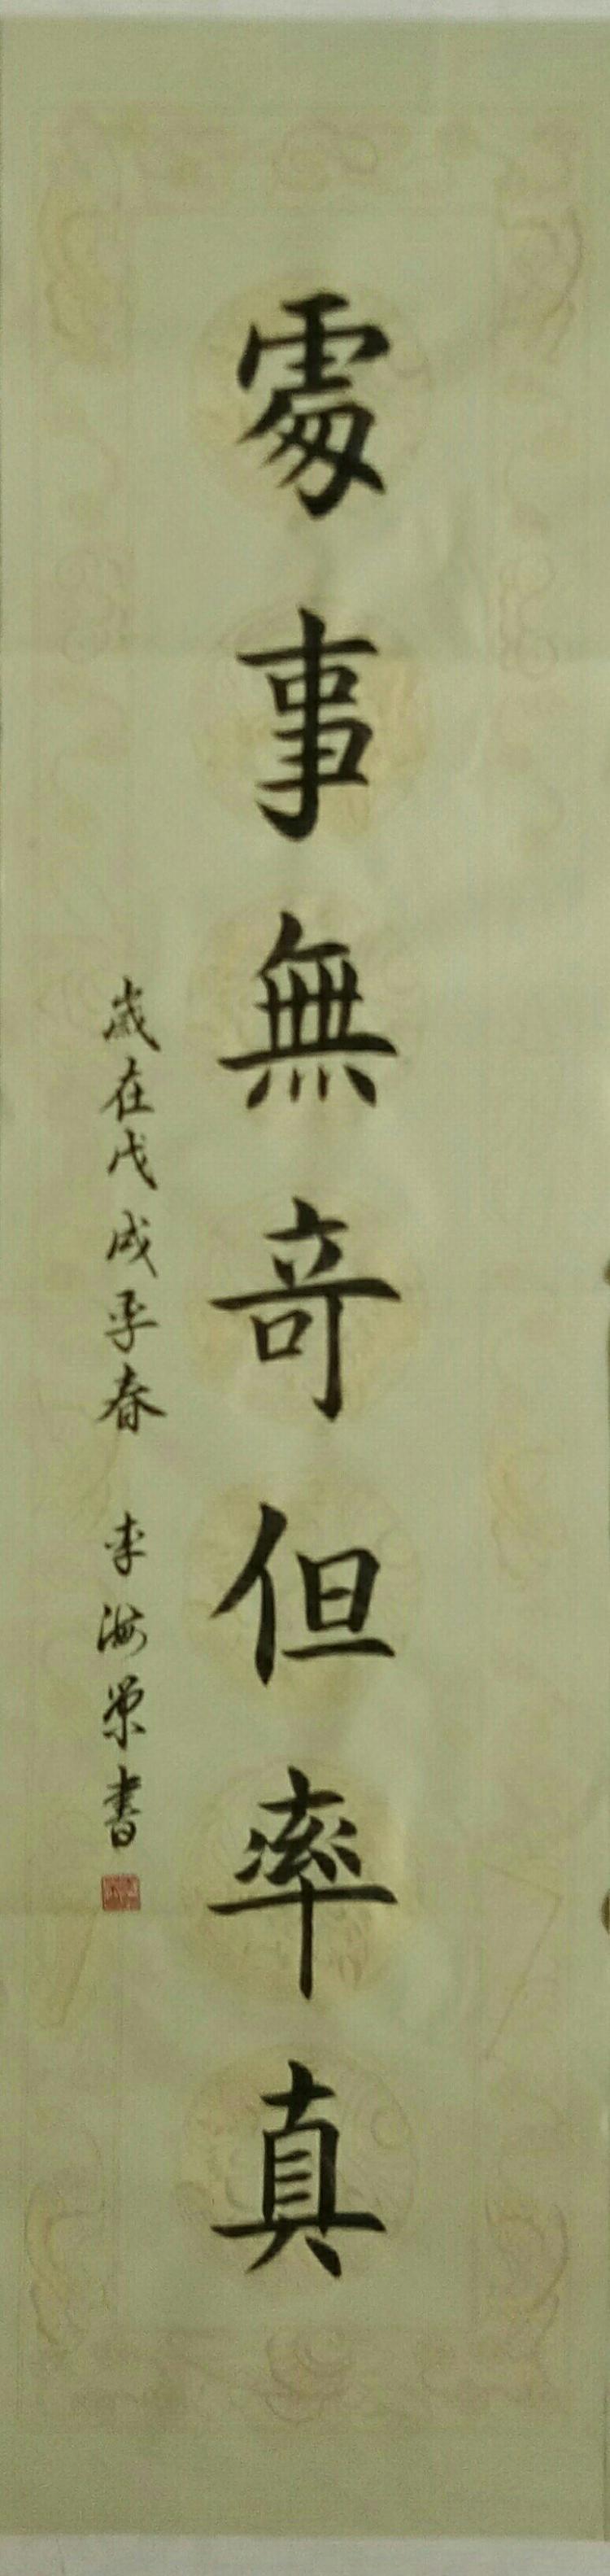 處事無奇但率真
歲在戊戌年春 李海榮書